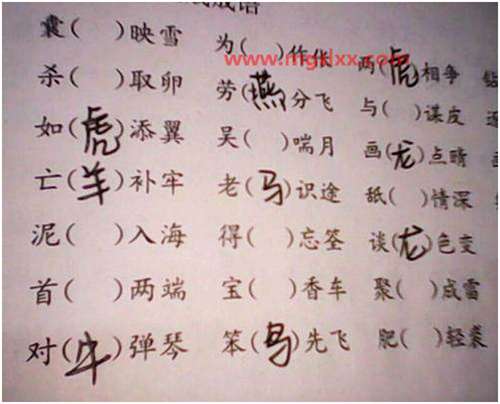 成语
囊( )映雪
杀( )取卵
如(虎)添翼
亡(羊)补牢
泥( )入海
首( )两端
对(牛)弹琴
为( )作伥
劳(燕)分飞
吴( )喘月
老(马)识途
得( )忘筌
宝( )香车
笨(鸟)先飞
两(虎)相争
与( )谋皮
画(龙)点睛
舐( )情深
谈(龙)色变
聚( )成雷
肥( )轻裘